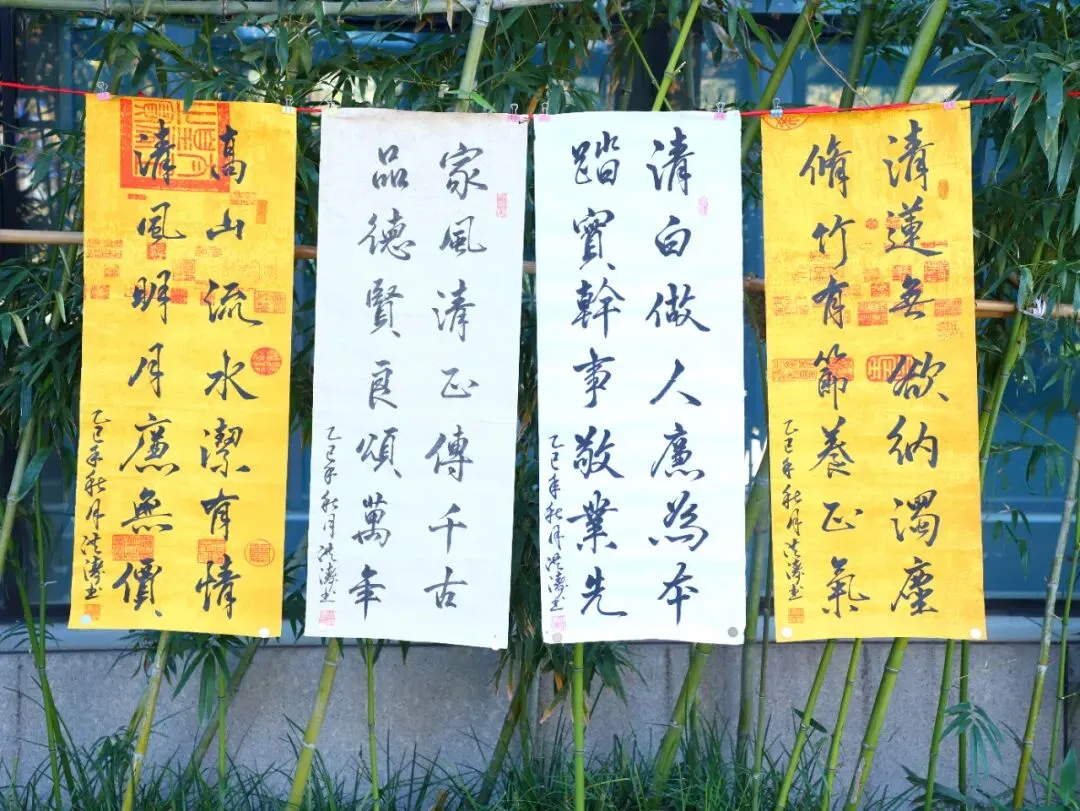 清蓮無欲納濁塵
脩竹有節養正氣
乙巳年秋月洪濤书
清白做人廉為本
踏實幹事敬業先
乙巳年秋月洪濤书
家風清正傳千古
品德賢良頌萬年
乙巳年秋月洪濤书
高山流水潔有情
清風明月廉無價
乙巳年秋月洪濤书